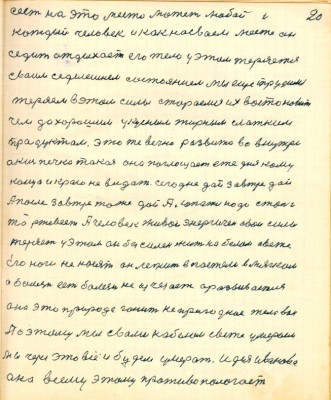 20
сест на это место может любой и
каждый человек и как насваем месте он
седит отдыхает его тело у этом теряется
сваим седешнием состоянием мы еще трудимся
теряем в этом силы стараемся их востоновит
чем да хорошим укусным жирным сладким
продуктом. это же вечно развито во внутре
аки печка такая она поглощает еже дня кому
конца и краю не видат. сегодня дай завтра дай
А после завтра то же дай А. лопата кода стоит
то ржевеет А человек живой энергичен свои силы
теряет у этом он басилен жит на белом свете
Его ноги не носят он лежит в постели в мягкой
а болиць ест болезнь не изчезает а развивается
она это природе гонит не пригодная тело вон
Поэтому мы свами на белом свете умераем
мы через это всё и будем умерат. Идея Иванова
она всему этому противополагает